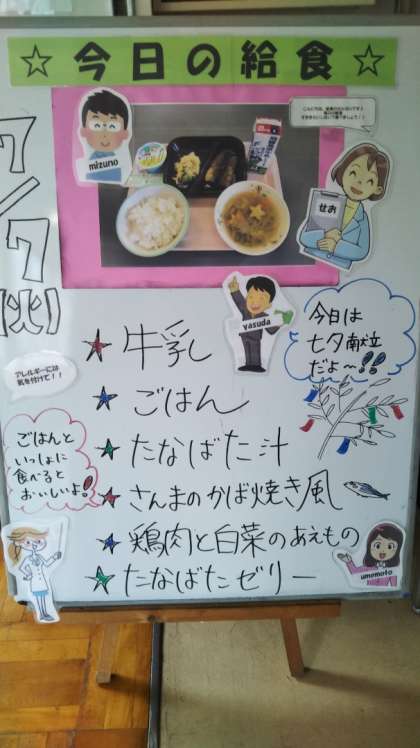 ☆今日の給食☆
mizuno
せお
7/7
(火)
yasuda
今日は
七夕献立
だよ～!!
アレルギーには
気を付けて！！
★牛乳
★ごはん
★たなばた汁
★さんまのかば焼き風
★鶏肉と白菜のあえもの
★たなばたゼリー
ごはんと
いっしょに
食べると
おいしいよ!
umemoto